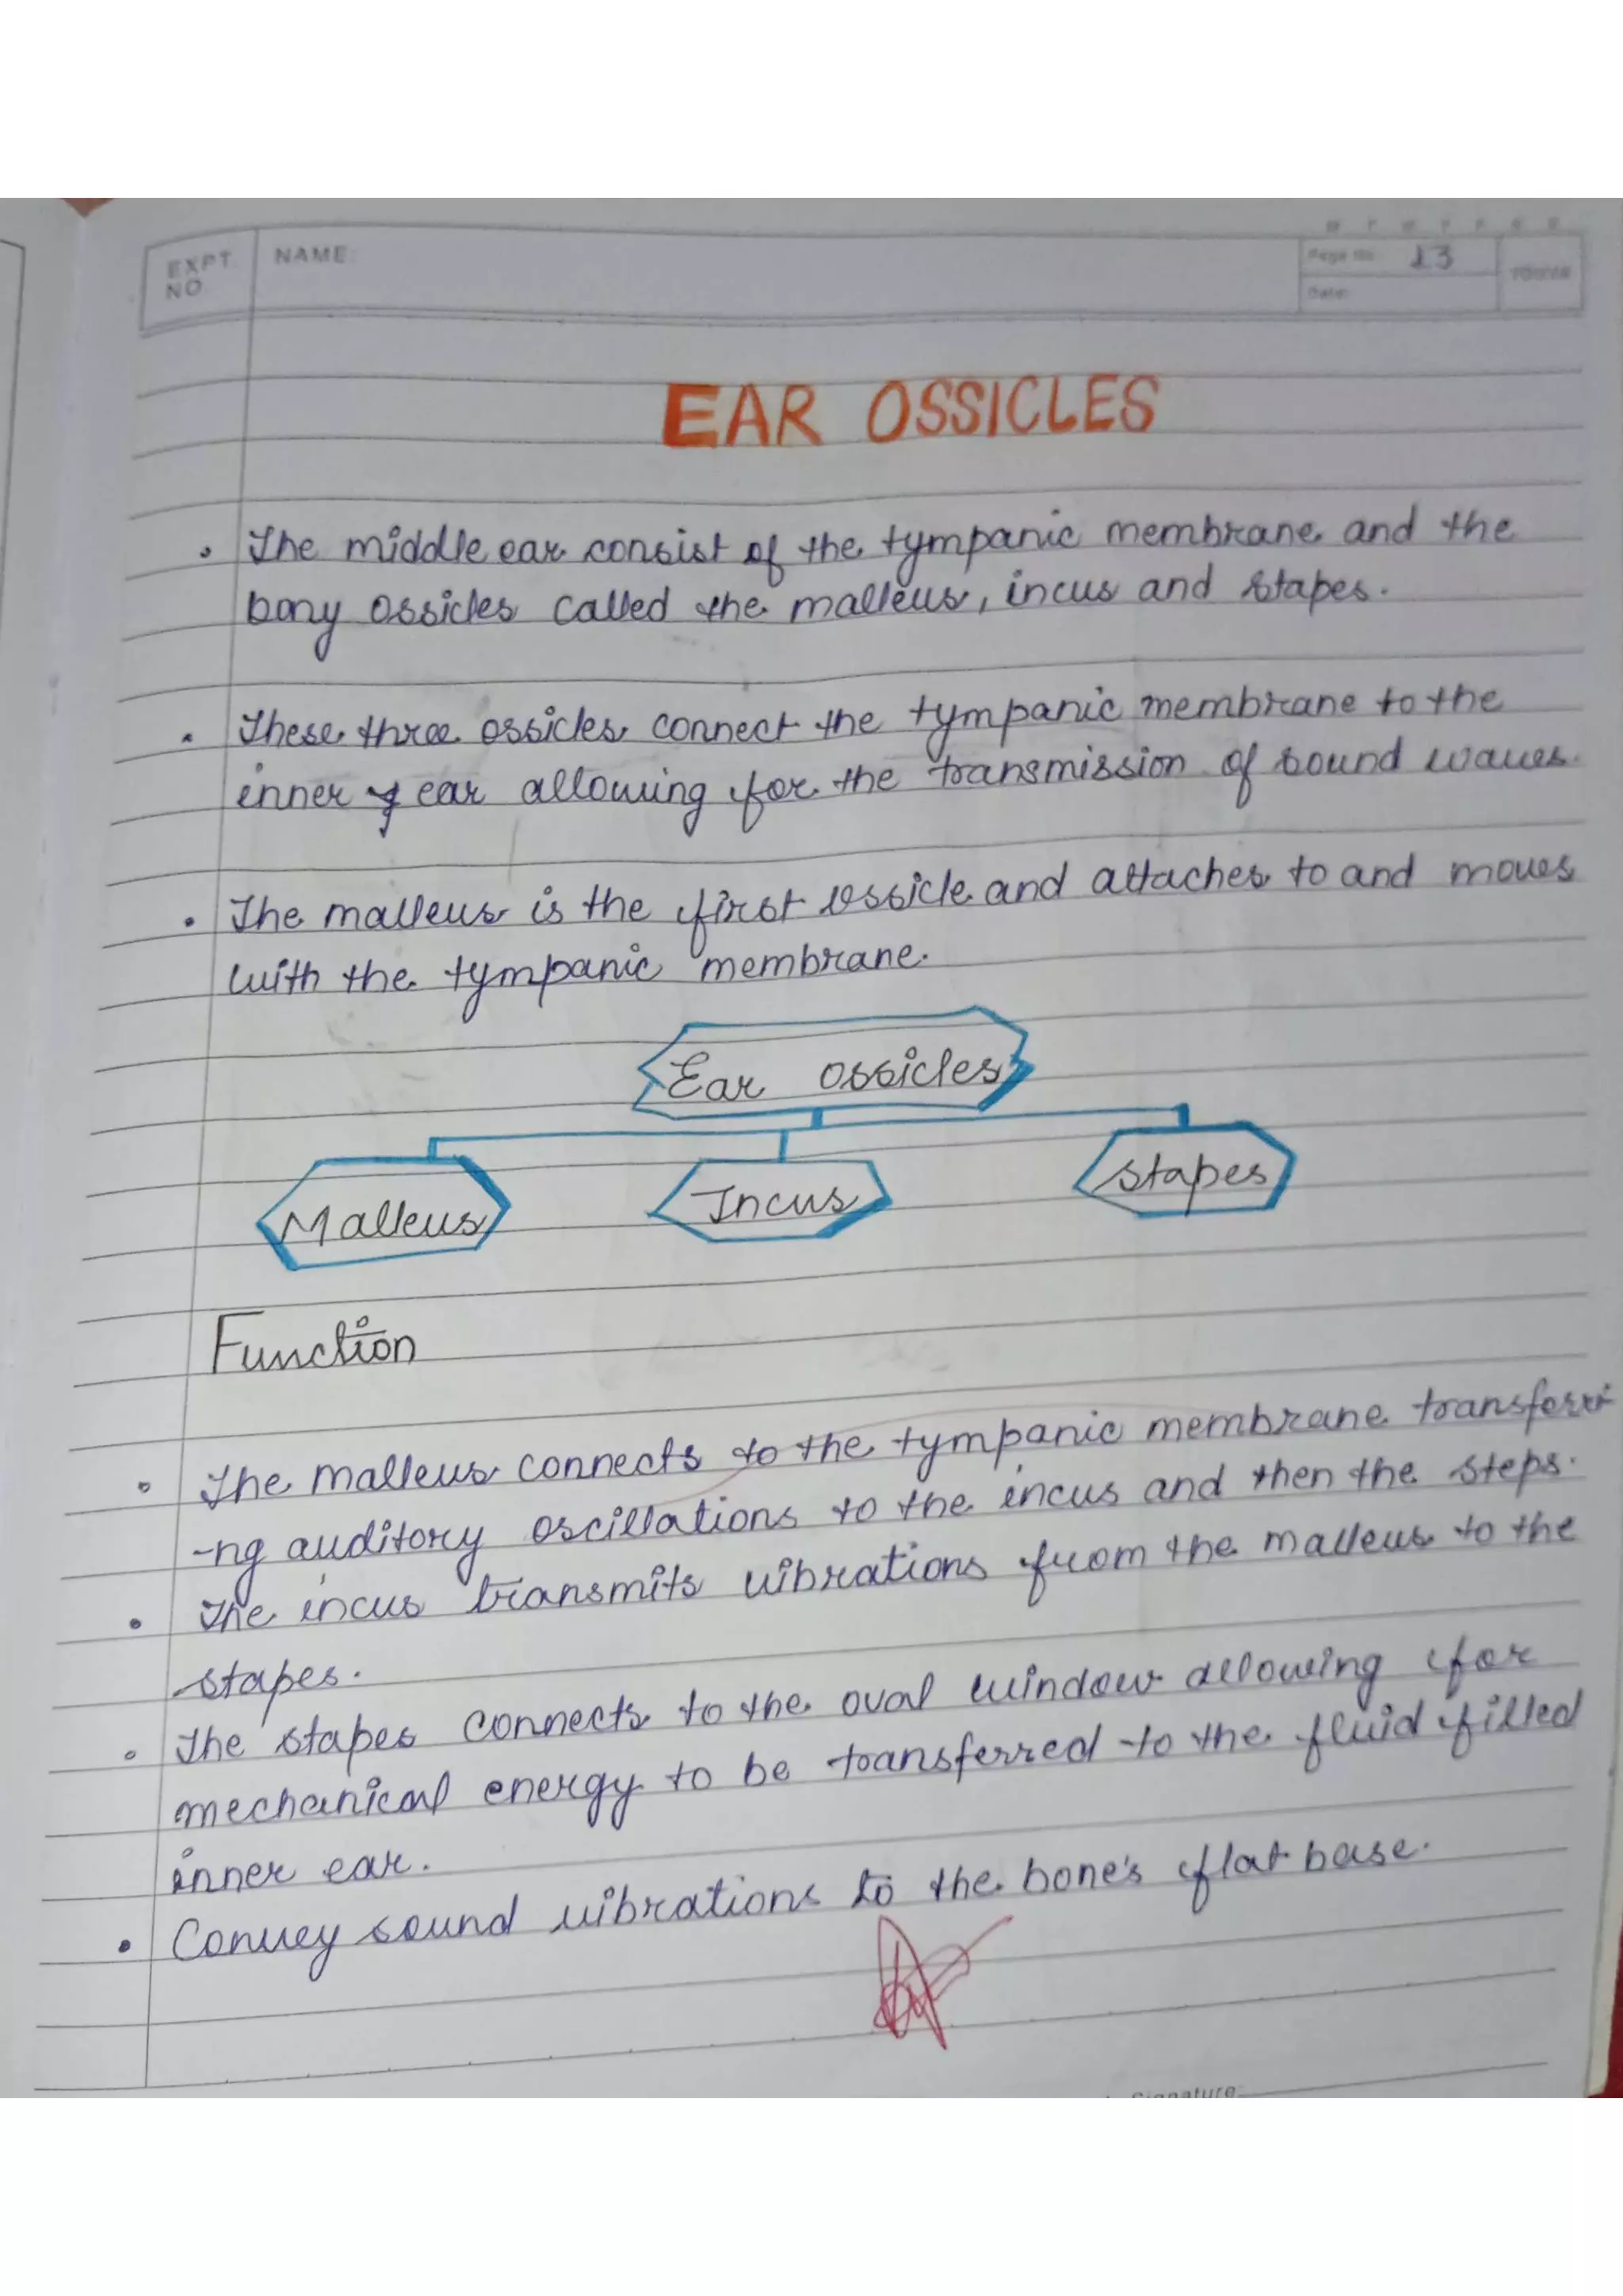 M T W T F S S
EXPT. NO.
NAME:
Page No. 13
Date:
YOUVA
EAR OSSICLES
• The middle ear consist of the tympanic membrane and the
bony ossicles called the malleus, incus and stapes.
• These three ossicles connect the tympanic membrane to the
inner ear allowing for the transmission of sound waves.
• The malleus is the first ossicle and attaches to and moves
with the tympanic membrane.
Ear ossicles
Malleus
Incus
stapes
Function
• The malleus connects to the tympanic membrane transferri
-ng auditory oscillations to the incus and then the steps.
• The incus transmits vibrations from the malleus to the
stapes.
• The stapes connects to the oval window allowing for
mechanical energy to be transferred to the fluid filled
inner ear.
• Convey sound vibrations to the bone's flat base.
Signature: